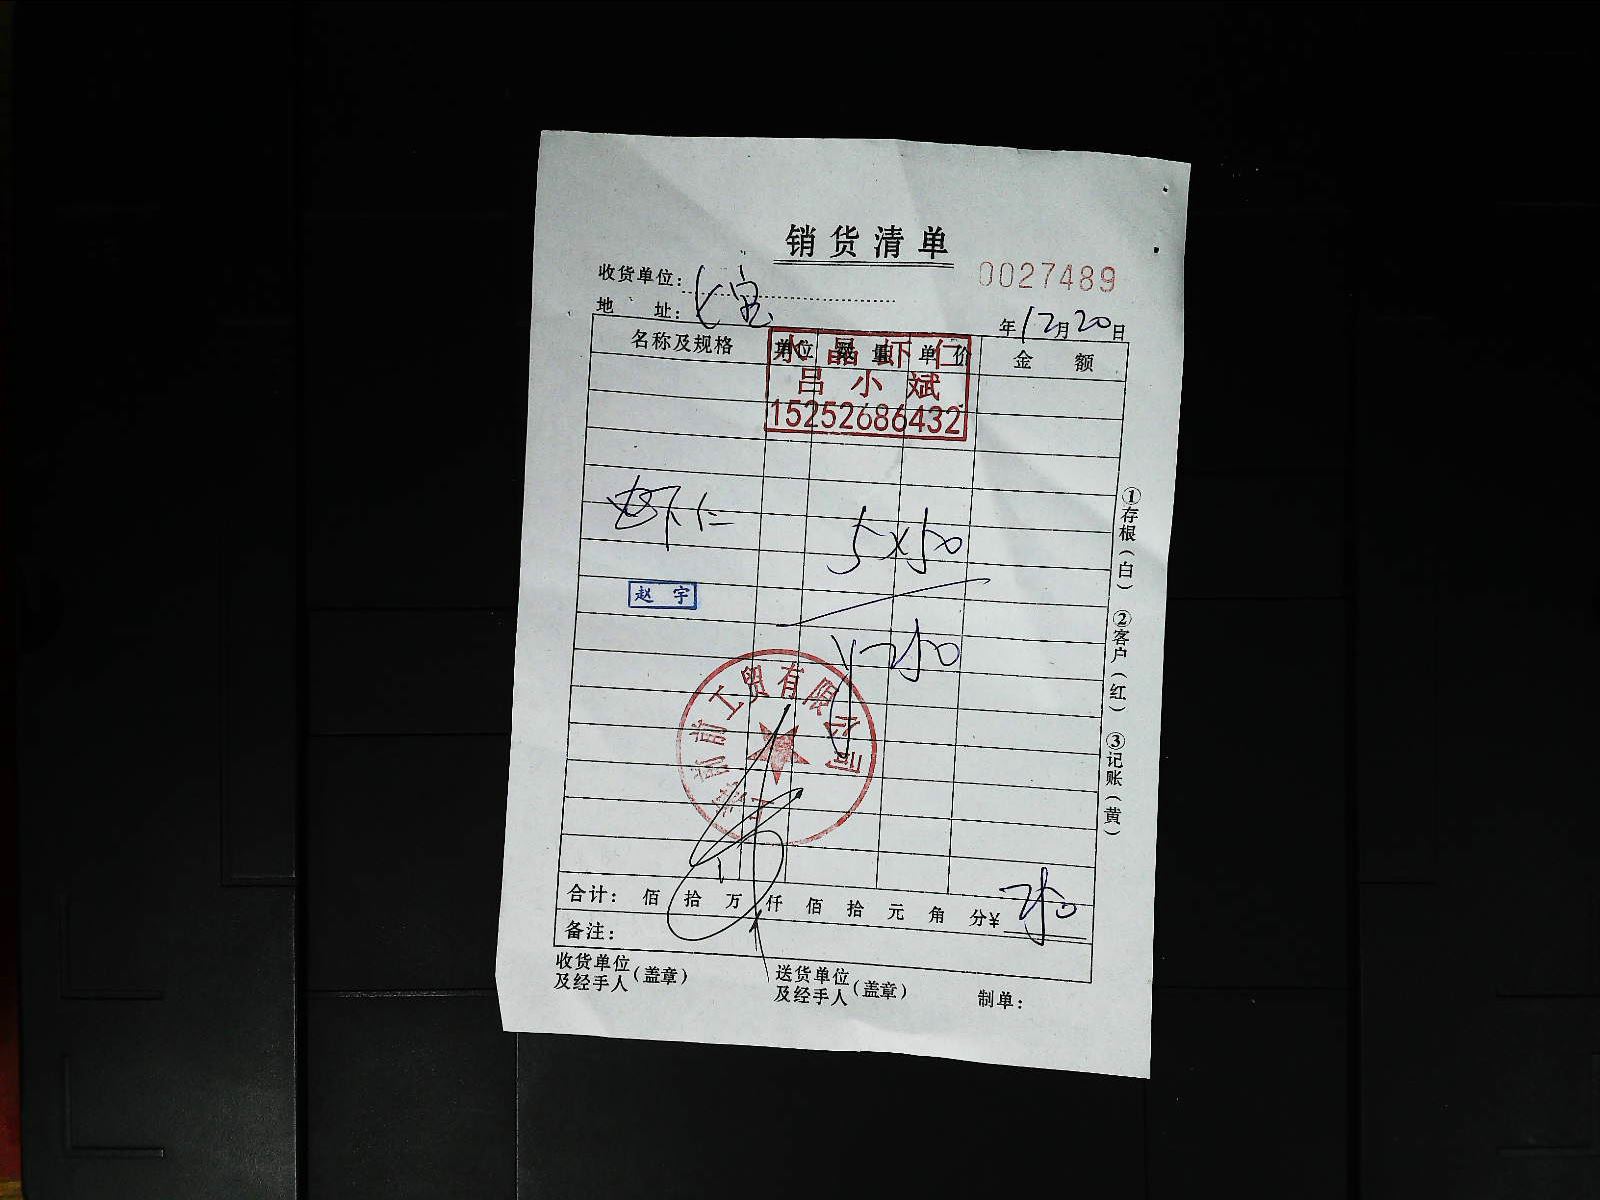 销货清单
0027489
收货单位: 七宝
地 址:
年12月20日
名称及规格 单位 数量 单价 金额
水晶虾仁
吕小斌
15252686432
虾仁 5×50
赵宇
¥250
前前工贸有限公司
合计: 佰 拾 万 仟 佰 拾 元 角 分¥ 250
备注:
收货单位及经手人(盖章)
送货单位及经手人(盖章)
制单:
①存根(白) ②客户(红) ③记账(黄)